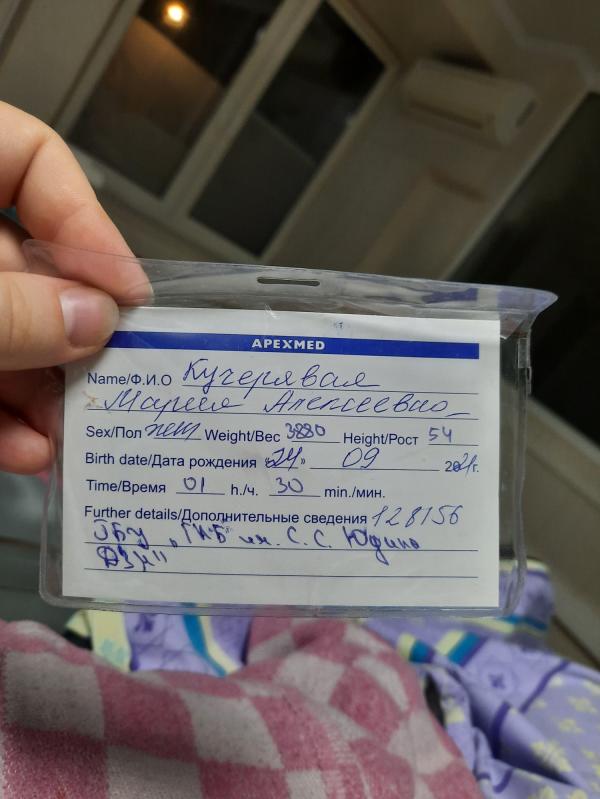 APEXMED
Name/Ф.И.О Кучерявая
Мария Алексеевна
Sex/Пол жен Weight/Вес 3880 Height/Рост 54
Birth date/Дата рождения «24» 09 2021г.
Time/Время 01 h./ч. 30 min./мин.
Further details/Дополнительные сведения 128156
ГБУ „ГКБ им. С. С. Юдина
ДЗМ"